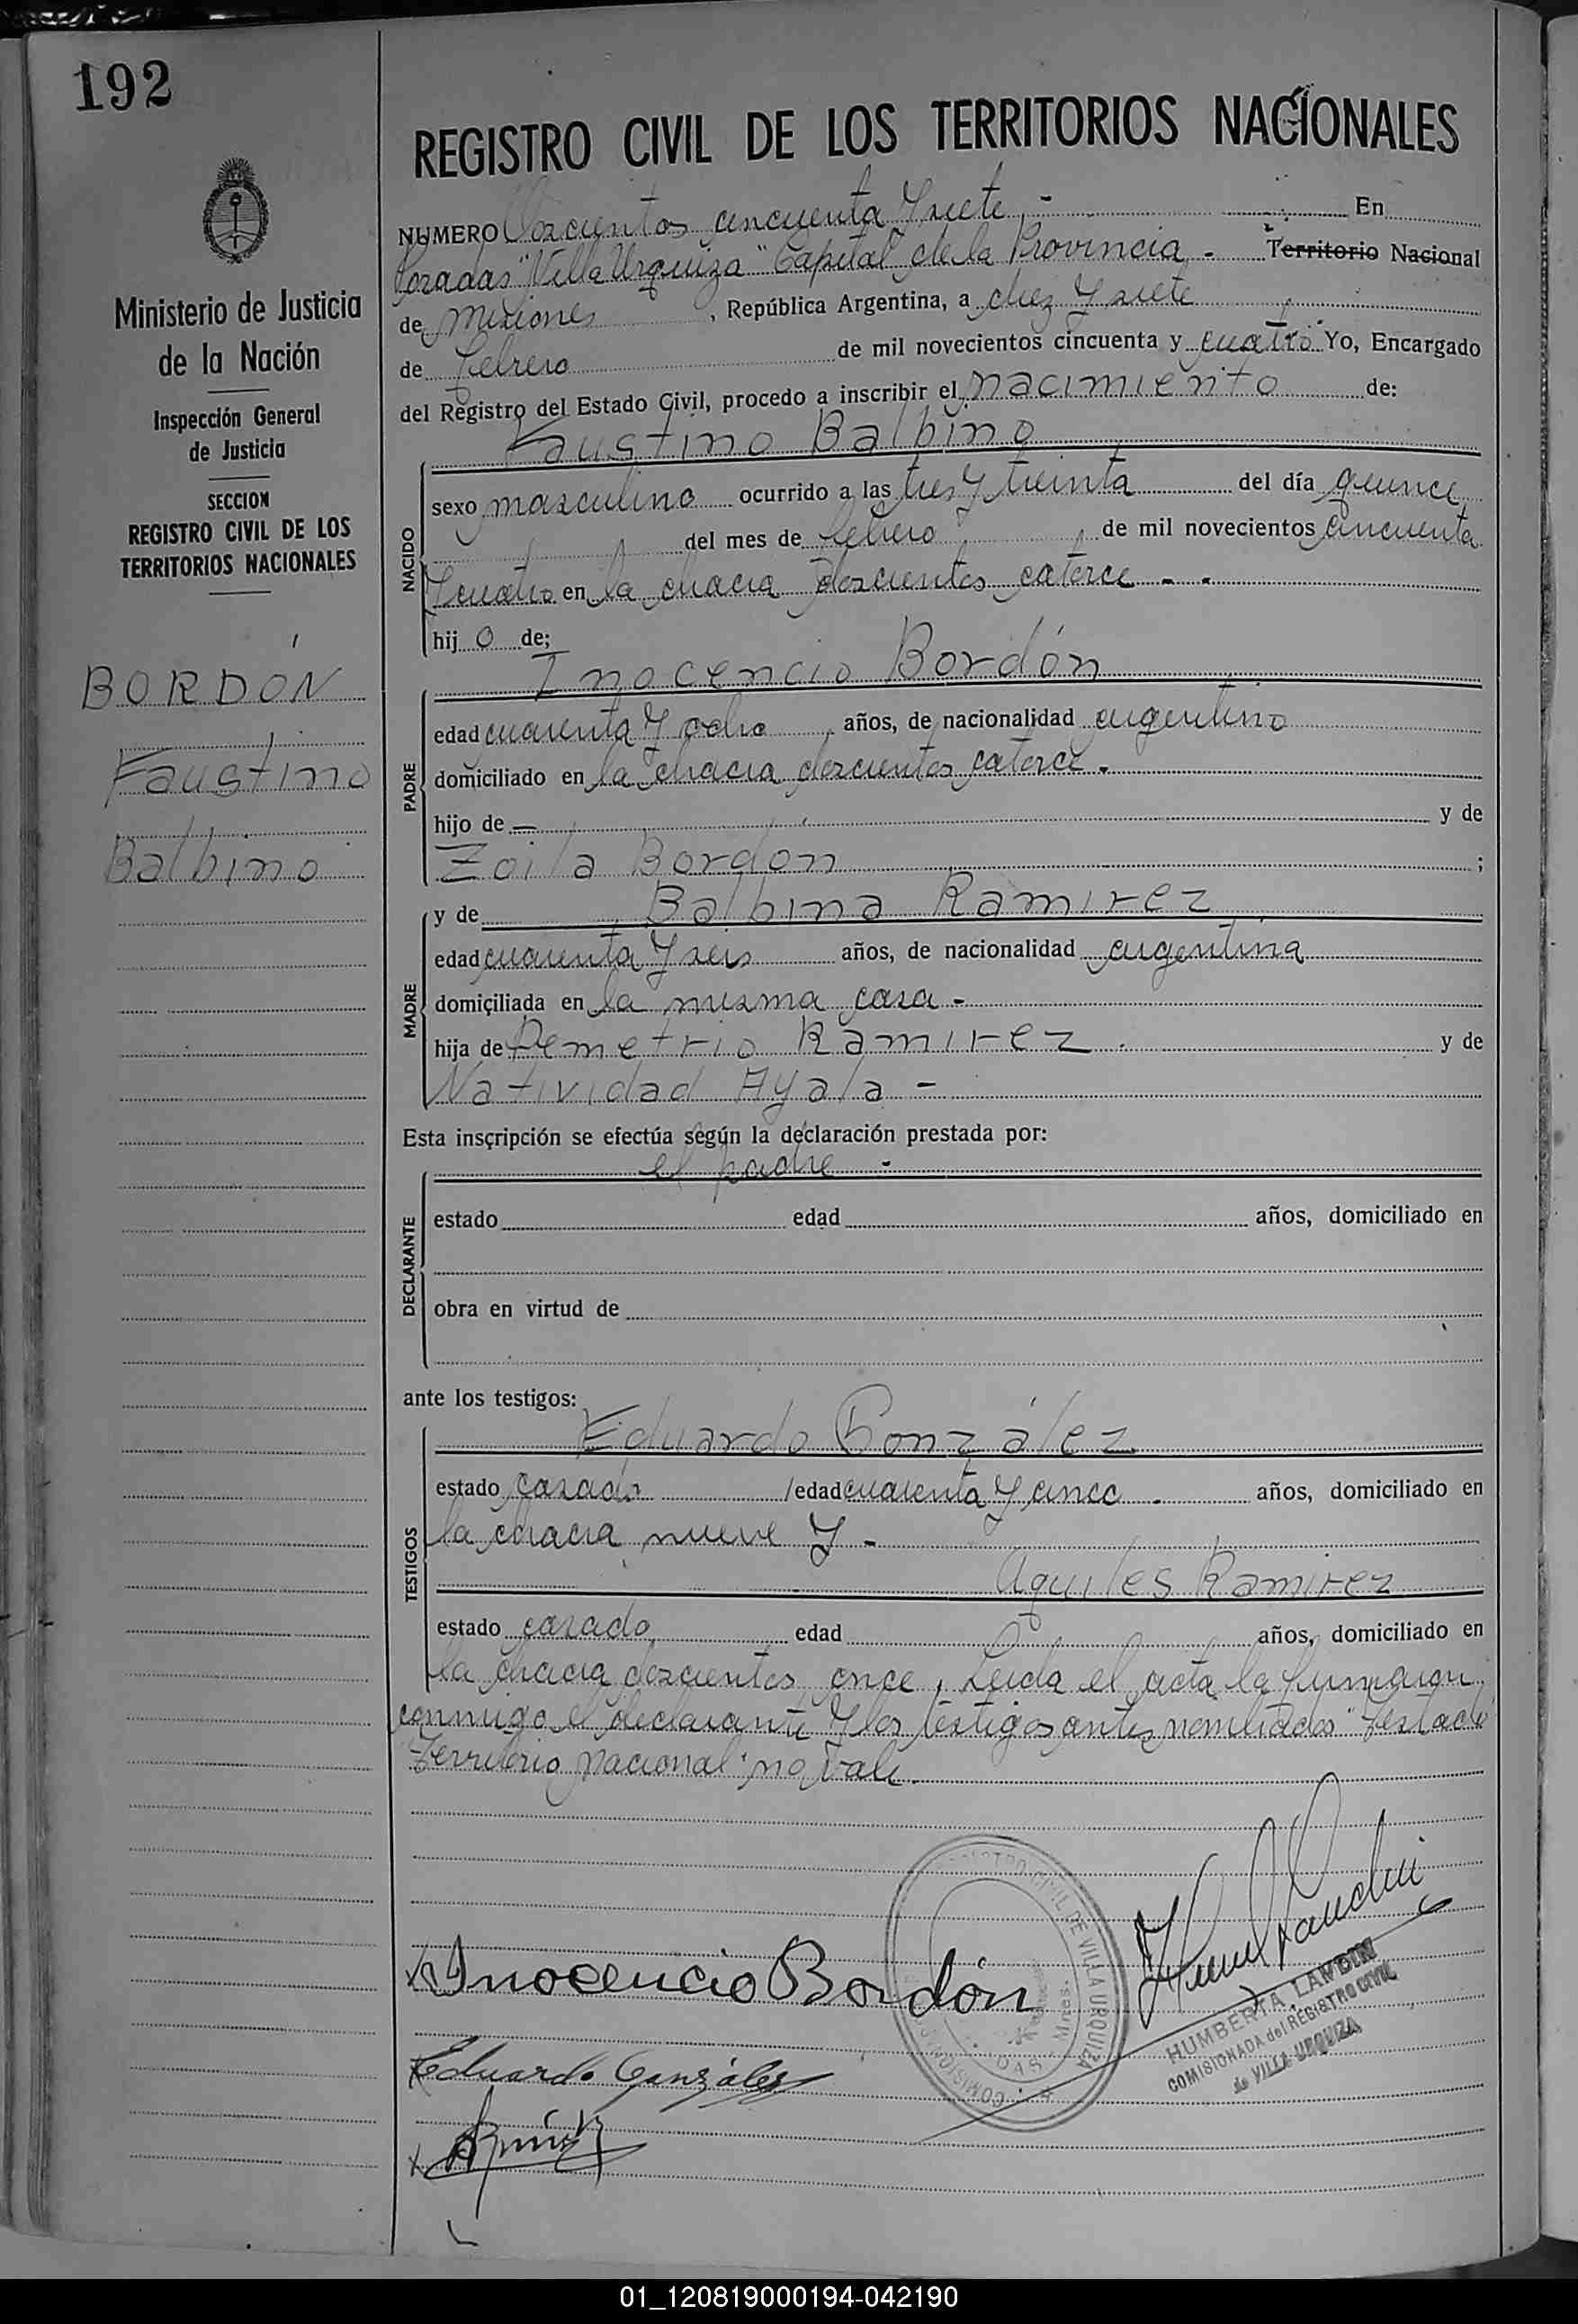 192
Ministerio de Justicia
de la Nación
Inspección General
de Justicia
SECCION
REGISTRO CIVIL DE LOS
TERRITORIOS NACIONALES
BORDÓN
Faustino
Balbino
REGISTRO CIVIL DE LOS TERRITORIOS NACIONALES
NUMERO Doscientos cincuenta y siete - En
Posadas "Villa Urquiza" Capital de la Provincia - Territorio Nacional
de Misiones, República Argentina, a diez y siete
de febrero de mil novecientos cincuenta y cuatro Yo, Encargado
del Registro del Estado Civil, procedo a inscribir el nacimiento de:
Faustino Balbino
NACIDO
sexo masculino ocurrido a las tres y treinta del día quince
del mes de febrero de mil novecientos cincuenta
y cuatro en la chacra doscientos catorce - -
hijo de;
Inocencio Bordón
PADRE
edad cuarenta y ocho años, de nacionalidad argentino
domiciliado en la chacra doscientos catorce -
hijo de — y de
Zoila Bordón ;
MADRE
y de Balbina Ramirez
edad cuarenta y seis años, de nacionalidad argentina
domiciliada en la misma casa -
hija de Demetrio Ramirez y de
Natividad Ayala -
Esta inscripción se efectúa según la declaración prestada por:
el padre -
DECLARANTE
estado edad años, domiciliado en
obra en virtud de
ante los testigos:
Eduardo González
TESTIGOS
estado casado edad cuarenta y cinco - años, domiciliado en
la chacra nueve y -
Aquiles Ramirez
estado casado edad años, domiciliado en
la chacra doscientos once, Leida el acta la firmaron
conmigo el declarante y los testigos antes nombrados "Testado
Territorio Nacional" no vale.
Inocencio Bordón
Eduardo González
REGISTRO CIVIL DE VILLA URQUIZA
HUMBERTA LANDIN
COMISIONADA del REGISTRO CIVIL
de VILLA URQUIZA
01_120819000194-042190